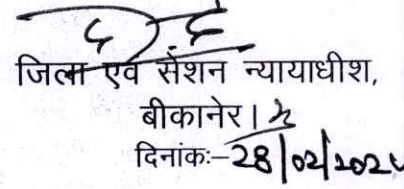 जिला एवं सेशन न्यायाधीश,
बीकानेर।
दिनांकः-28/02/202